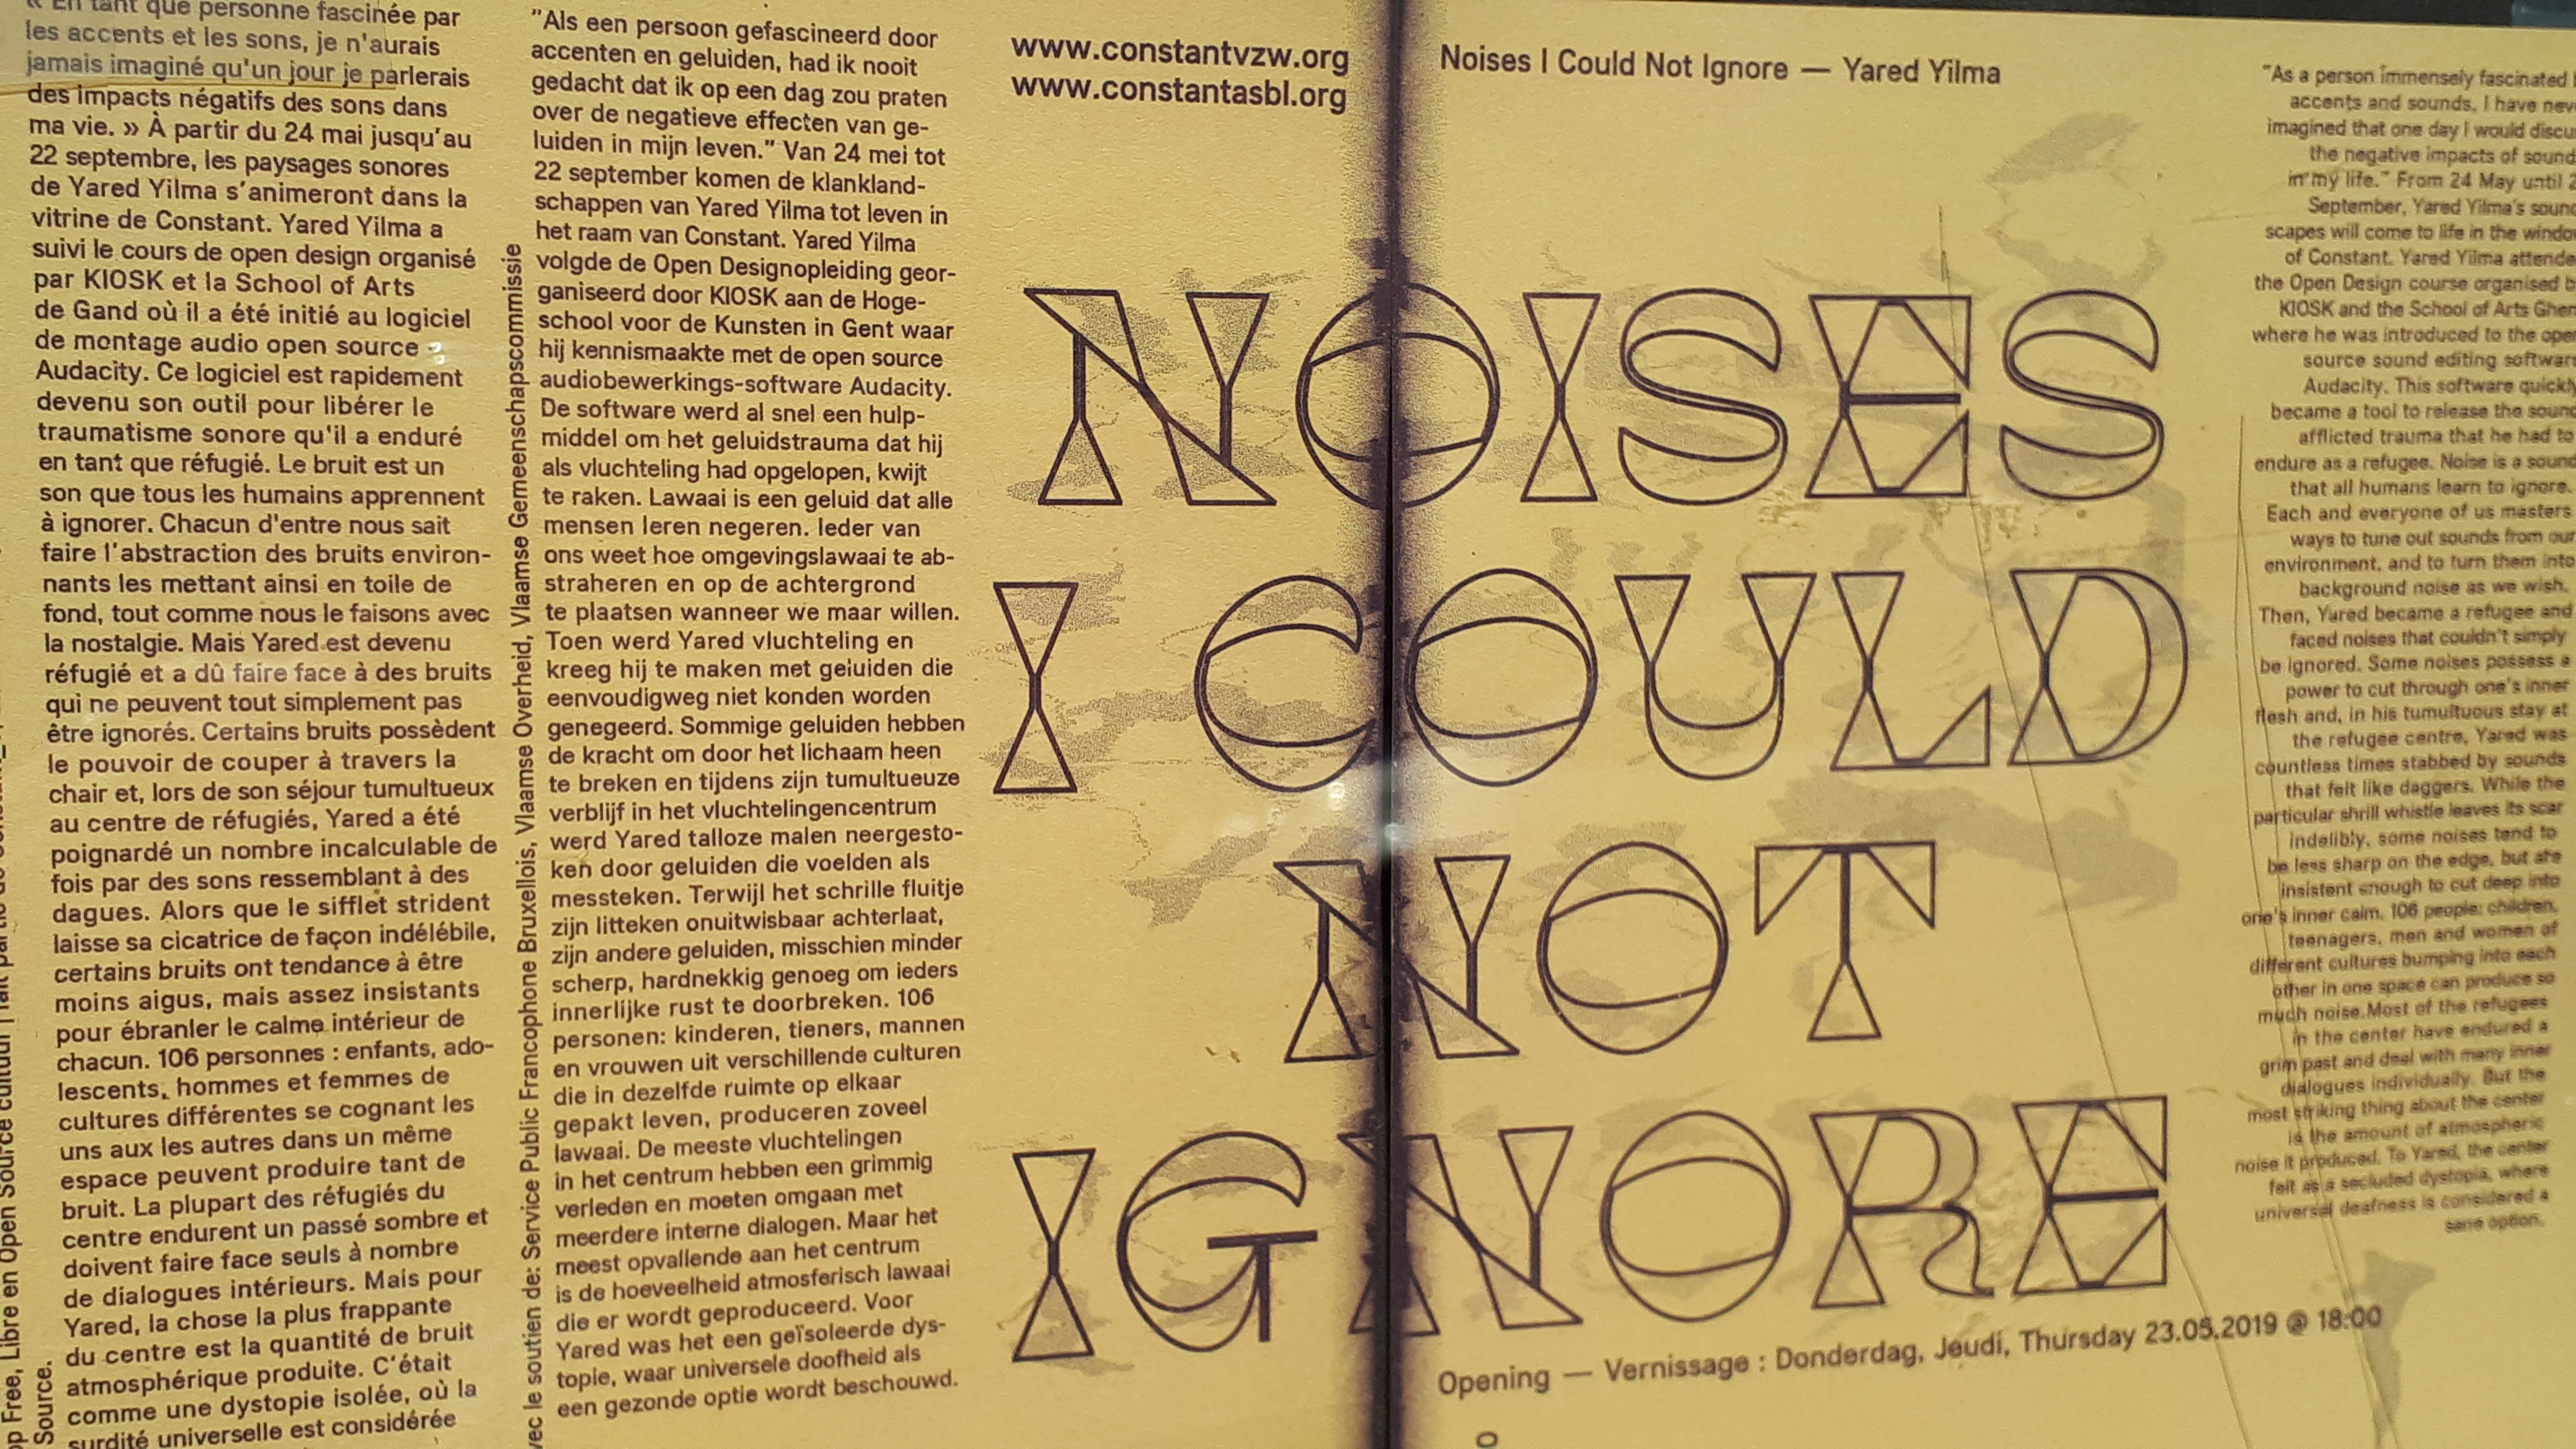 « En tant que personne fascinée par
les accents et les sons, je n'aurais
jamais imaginé qu'un jour je parlerais
des impacts négatifs des sons dans
ma vie. » À partir du 24 mai jusqu'au
22 septembre, les paysages sonores
de Yared Yilma s'animeront dans la
vitrine de Constant. Yared Yilma a
suivi le cours de open design organisé
par KIOSK et la School of Arts
de Gand où il a été initié au logiciel
de montage audio open source
Audacity. Ce logiciel est rapidement
devenu son outil pour libérer le
traumatisme sonore qu'il a enduré
en tant que réfugié. Le bruit est un
son que tous les humains apprennent
à ignorer. Chacun d'entre nous sait
faire l'abstraction des bruits environ-
nants les mettant ainsi en toile de
fond, tout comme nous le faisons avec
la nostalgie. Mais Yared est devenu
réfugié et a dû faire face à des bruits
qui ne peuvent tout simplement pas
être ignorés. Certains bruits possèdent
le pouvoir de couper à travers la
chair et, lors de son séjour tumultueux
au centre de réfugiés, Yared a été
poignardé un nombre incalculable de
fois par des sons ressemblant à des
dagues. Alors que le sifflet strident
laisse sa cicatrice de façon indélébile,
certains bruits ont tendance à être
moins aigus, mais assez insistants
pour ébranler le calme intérieur de
chacun. 106 personnes : enfants, ado-
lescents, hommes et femmes de
cultures différentes se cognant les
uns aux les autres dans un même
espace peuvent produire tant de
bruit. La plupart des réfugiés du
centre endurent un passé sombre et
doivent faire face seuls à nombre
de dialogues intérieurs. Mais pour
Yared, la chose la plus frappante
du centre est la quantité de bruit
atmosphérique produite. C'était
comme une dystopie isolée, où la
surdité universelle est considérée
Free, Libre en Open Source
Source.
avec le soutien de: Service Public Francophone Bruxellois, Vlaamse Overheid, Vlaamse Gemeenschapscommissie
"Als een persoon gefascineerd door
accenten en geluiden, had ik nooit
gedacht dat ik op een dag zou praten
over de negatieve effecten van ge-
luiden in mijn leven." Van 24 mei tot
22 september komen de klankland-
schappen van Yared Yilma tot leven in
het raam van Constant. Yared Yilma
volgde de Open Designopleiding geor-
ganiseerd door KIOSK aan de Hoge-
school voor de Kunsten in Gent waar
hij kennismaakte met de open source
audiobewerkings-software Audacity.
De software werd al snel een hulp-
middel om het geluidstrauma dat hij
als vluchteling had opgelopen, kwijt
te raken. Lawaai is een geluid dat alle
mensen leren negeren. Ieder van
ons weet hoe omgevingslawaai te ab-
straheren en op de achtergrond
te plaatsen wanneer we maar willen.
Toen werd Yared vluchteling en
kreeg hij te maken met geluiden die
eenvoudigweg niet konden worden
genegeerd. Sommige geluiden hebben
de kracht om door het lichaam heen
te breken en tijdens zijn tumultueuze
verblijf in het vluchtelingencentrum
werd Yared talloze malen neergesto-
ken door geluiden die voelden als
messteken. Terwijl het schrille fluitje
zijn litteken onuitwisbaar achterlaat,
zijn andere geluiden, misschien minder
scherp, hardnekkig genoeg om ieders
innerlijke rust te doorbreken. 106
personen: kinderen, tieners, mannen
en vrouwen uit verschillende culturen
die in dezelfde ruimte op elkaar
gepakt leven, produceren zoveel
lawaai. De meeste vluchtelingen
in het centrum hebben een grimmig
verleden en moeten omgaan met
meerdere interne dialogen. Maar het
meest opvallende aan het centrum
is de hoeveelheid atmosferisch lawaai
die er wordt geproduceerd. Voor
Yared was het een geïsoleerde dys-
topie, waar universele doofheid als
een gezonde optie wordt beschouwd.
www.constantvzw.org
www.constantasbl.org
Noises I Could Not Ignore — Yared Yilma
NOISES
I COULD
NOT
IGNORE
Opening — Vernissage : Donderdag, Jeudi, Thursday 23.05.2019 @ 18:00
"As a person immensely fascinated
accents and sounds, I have
imagined that one day I would
the negative impacts of
in my life." From 24 May until
September, Yared Yilma's
scapes will come to life in the
of Constant. Yared Yilma
the Open Design course organised
KIOSK and the School of Arts
where he was introduced to the
source sound editing software
Audacity. This software quickly
became a tool to release the sound
afflicted trauma that he had to
endure as a refugee. Noise is a sound
that all humans learn to ignore.
Each and everyone of us masters
ways to tune out sounds from our
environment, and to turn them into
background noise as we wish.
Then, Yared became a refugee and
faced noises that couldn't simply
be ignored. Some noises possess a
power to cut through one's inner
flesh and, in his tumultuous stay at
the refugee centre, Yared was
countless times stabbed by sounds
that felt like daggers. While the
particular shrill whistle leaves its scar
indelibly, some noises tend to
be less sharp on the edge, but are
insistent enough to cut deep into
one's inner calm. 106 people: children,
teenagers, men and women of
different cultures bumping into each
other in one space can produce so
much noise.Most of the refugees
in the center have endured a
grim past and deal with many inner
dialogues individually. But the
most striking thing about the center
is the amount of atmospheric
noise it produced. To Yared, the center
felt as a secluded dystopia, where
universal deafness is considered a
sane option.